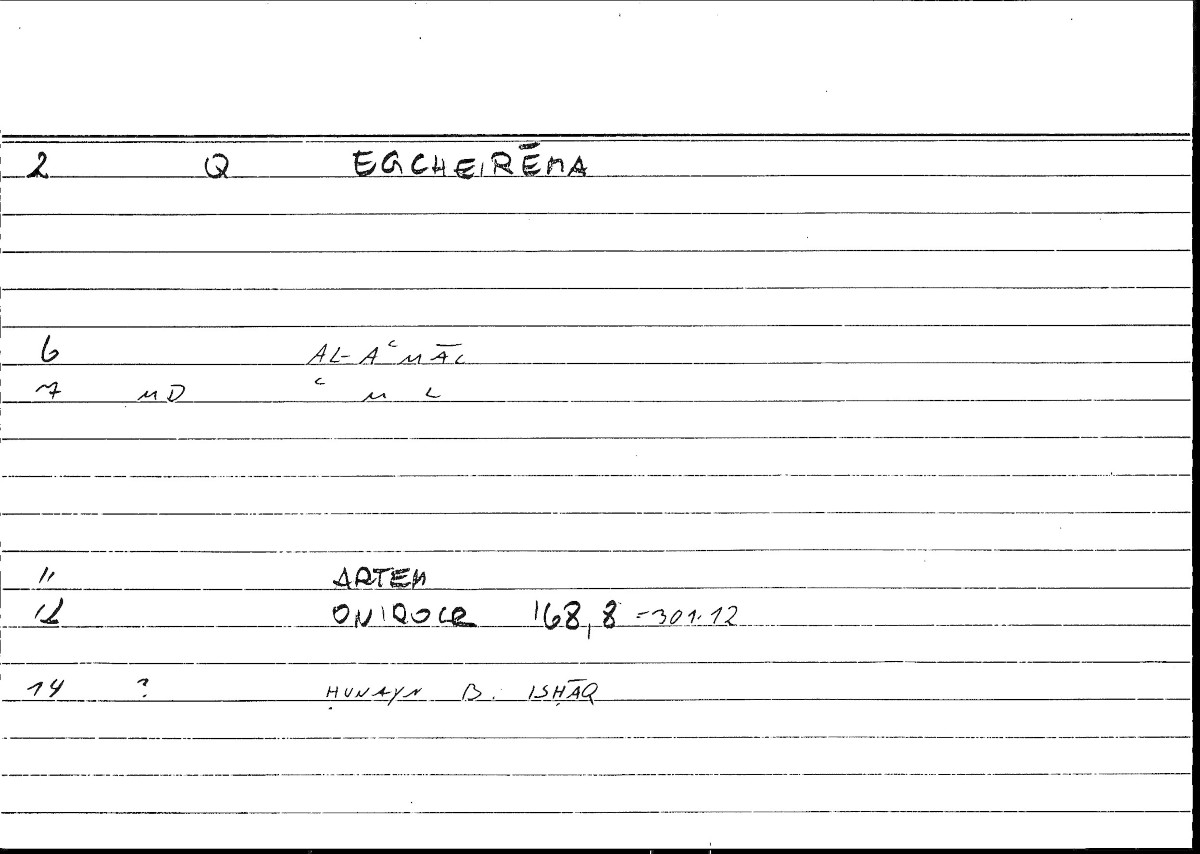 2 Q EGCHEIRĒMA
6 AL-AʿMĀL
7 MD ʿ M L
11 ARTEM
12 ONIROCR 168,8 =301.12
14 ? ḤUNAYN B. ISḤĀQ